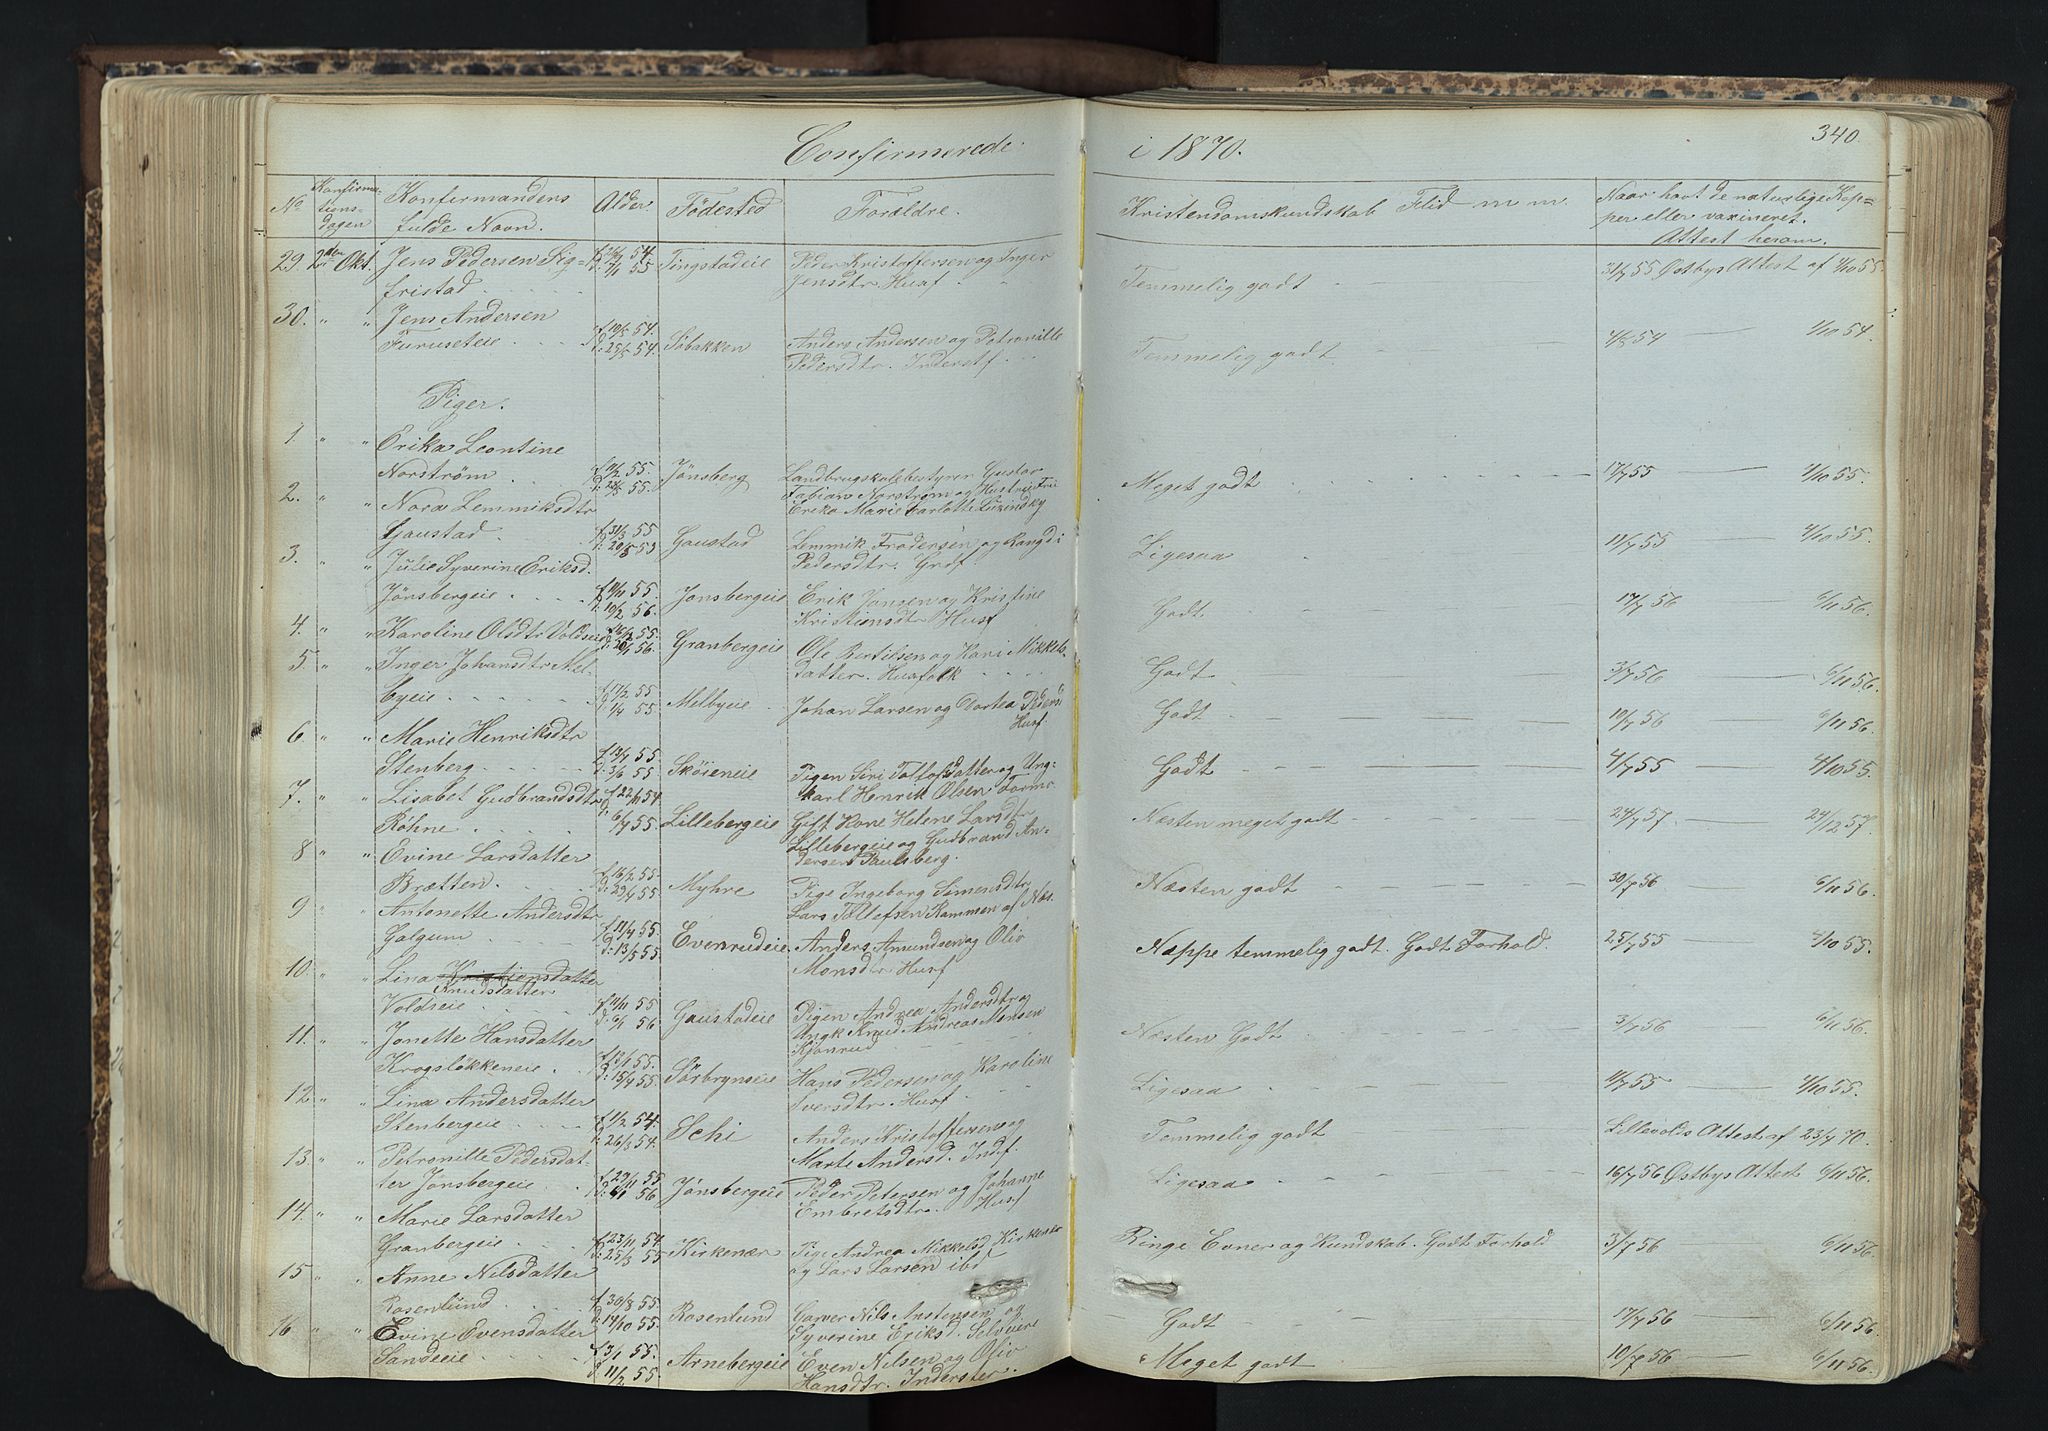 Confirmerede i 1870. 340.
No Konfirmationsdagen Konfirmandens fulde Navn. Alder. Födested Forældre. Kristendomskundskab Flid m m Naar havt de naturlige Kopper eller vaxineret. Attest herom.
29. 2den Okt. Jens Pedersen Sig= f 54. Tingstadeie Peder Kristoffersen og Inger 31/7 55 Østbys Attest af 4/10 55.
fristad d: 7/1 55 Jensdtr. Husf. Temmelig godt
30. " " Jens Andersen
Furuseteie f 10/5 54. d: 25/5 54. Sobakken Anders Andersen og Petronille 54 4/10 54.
Pedersdtr. Inderstf. Temmelig godt
Piger.
1. " " Erika Leontine
Nordstrøm f 55. d: 55. Jønsberg Landbrugskolebestyrer Gustav Meget godt 17/7 55 4/10 55.
2. " " Nora Lemmiksdtr Fabian Norstrøm og Hustru
Erika Marie Carlotte
Gaustad f 31/3 55 d: 20/5 53 Gaustad Lemmik Frodersen og Rangdi Ligesaa 11/7 55 4/10 55.
3. " " Julie Syverine Eriksd. Pedersdtr. Grdf.
Jönsbergeie f 11/11 55. d: 10/2 56. Jonsbergeie Erik Jonsen og Kristine Godt 17/7 56 6/11 56.
4. " " Karoline Olsdtr Voldseie f 16/2 55. d: 56. Granbergeie Kristiansdtr Husf
5. " " Inger Johansdtr Mel- Ole Bertilsen og Kari Mikkels- Godt 3/7 56 6/11 56.
datter. Husfolk
byeie f 17/2 55 d: 1/4 55 Melbyeie Johan Larsen og Dortea Peders Godt 10/7 56 6/11 56.
6. " " Marie Henriksdtr Husf.
Stenberg f 13/4 55 d: 3/6 55 Sköieneie Pigen Siri Tollofsdatter og Ung- Godt 4/7 55 4/10 55.
7. " " Lisabet Gudbrandsdtr f 22/11 54 karl Henrik Olsen
Röhne d: 6/4 55. Lillebergeie Gift Kone Helene Larsdtr Næsten meget godt 24/7 57. 24/12 57.
Lillebergeie og Gudbrand An-
8 " " Evine Larsdatter dersen Paulsberg.
Brætten. f 16/2 55. d: 29/4 55 Myhre Pige Ingeborg Simensdtr Næsten godt 30/7 56 6/11 56.
9 " " Antonette Andersdtr Lars Tollefsen Rammen af Næs.
Galgum f 11/4 55 d: 13/5 55 Evenrudeie Anders Amundsen og Oliv Næppe temmelig godt. Godt Forhold. 25/7 55 4/10 55.
10. " " Lina Kristiansdatter Monsdtr. Husf
Knudsdatter
Voldseie f 11/11 55 d: 6/1 56 Gaustadeie Pigen Andrea Andersdtr og 3/7 56 6/11 56.
Ungk Knud Andreas Monsen Næsten Godt
11. " " Jonette Hansdatter Kjonrud
Krogsløkkeneie f 13/1 55. d: 15/4 55. Sørbrynseie Hans Pedersen og Karoline Ligesaa 4/7 55 4/10 55.
12. " " Lina Andersdatter Iversdtr. Husf.
Stenbergeie f 1/2 54. d: 26/3 54. Schi Anders Kristoffersen og Temmelig godt Lillevolds Attest af 23/7 70.
13. " " Petronille Pedersdat- Marte Andersd. Indf.
ter Jönsbergeie f 29/11 55 d: 56 Jønsbergeie Peder Petersen og Johanne Ligesaa 16/7 56 Østbys Attest 6/11 56.
14. " " Marie Larsdatter Embretsdtr. Husf
Granbergeie f 23/11 54 d: 25/3 55 Kirkenær Pige Andrea Mikkelsd. Kirkenær Ringe Evner og Kundskab. Godt Forhold 3/7 56 6/11 56.
15 " " Anne Nilsdatter og Lars Larsen ibd.
Rosenlund f 30/8 55. d: 14/10 55. Rosenlund Garver Nils Anstensen og Godt 17/7 56 6/11 56.
16 " " Evine Evensdatter Syverine Eriksd.
Sandeeie f 3/1 55. d 11/2 55. Arnebergeie Even Nilsen og Oliv Meget godt 10/7 56 6/11 56.
Hansdtr. Inderster.